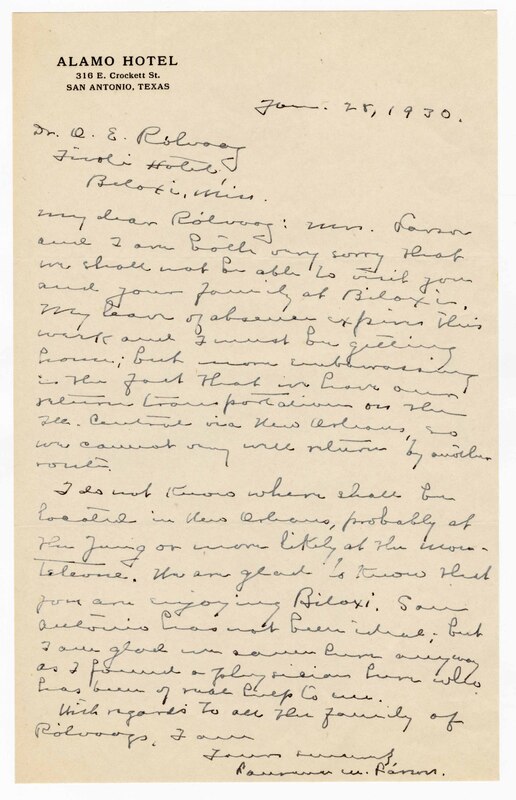 ALAMO HOTEL
316 E. Crockett St.
SAN ANTONIO, TEXAS
Jan. 28, 1930.
Dr. O. E. Rölvaag
Tivoli Hotel,
Biloxi, Miss.
My dear Rölvaag: Mrs. Larson
and I are both very sorry that
we shall not be able to visit you
and your family at Biloxi.
My leave of absence expires this
week and I must be getting
home; but more embarrassing
is the fact that we have our
return transportation on the
Ill. Central via New Orleans, so
we cannot very well return by another
route.
I do not know where shall be
located in New Orleans, probably at
the Jung or more likely at the Mon-
teleone. We are glad to know that
you are enjoying Biloxi. San
Antonio has not been ideal; but
I am glad we came here anyway
as I found a physician here who
has been of real help to me.
With regards to all the family of
Rölvaags, I am
Yours sincerely
Laurence M. Larson.